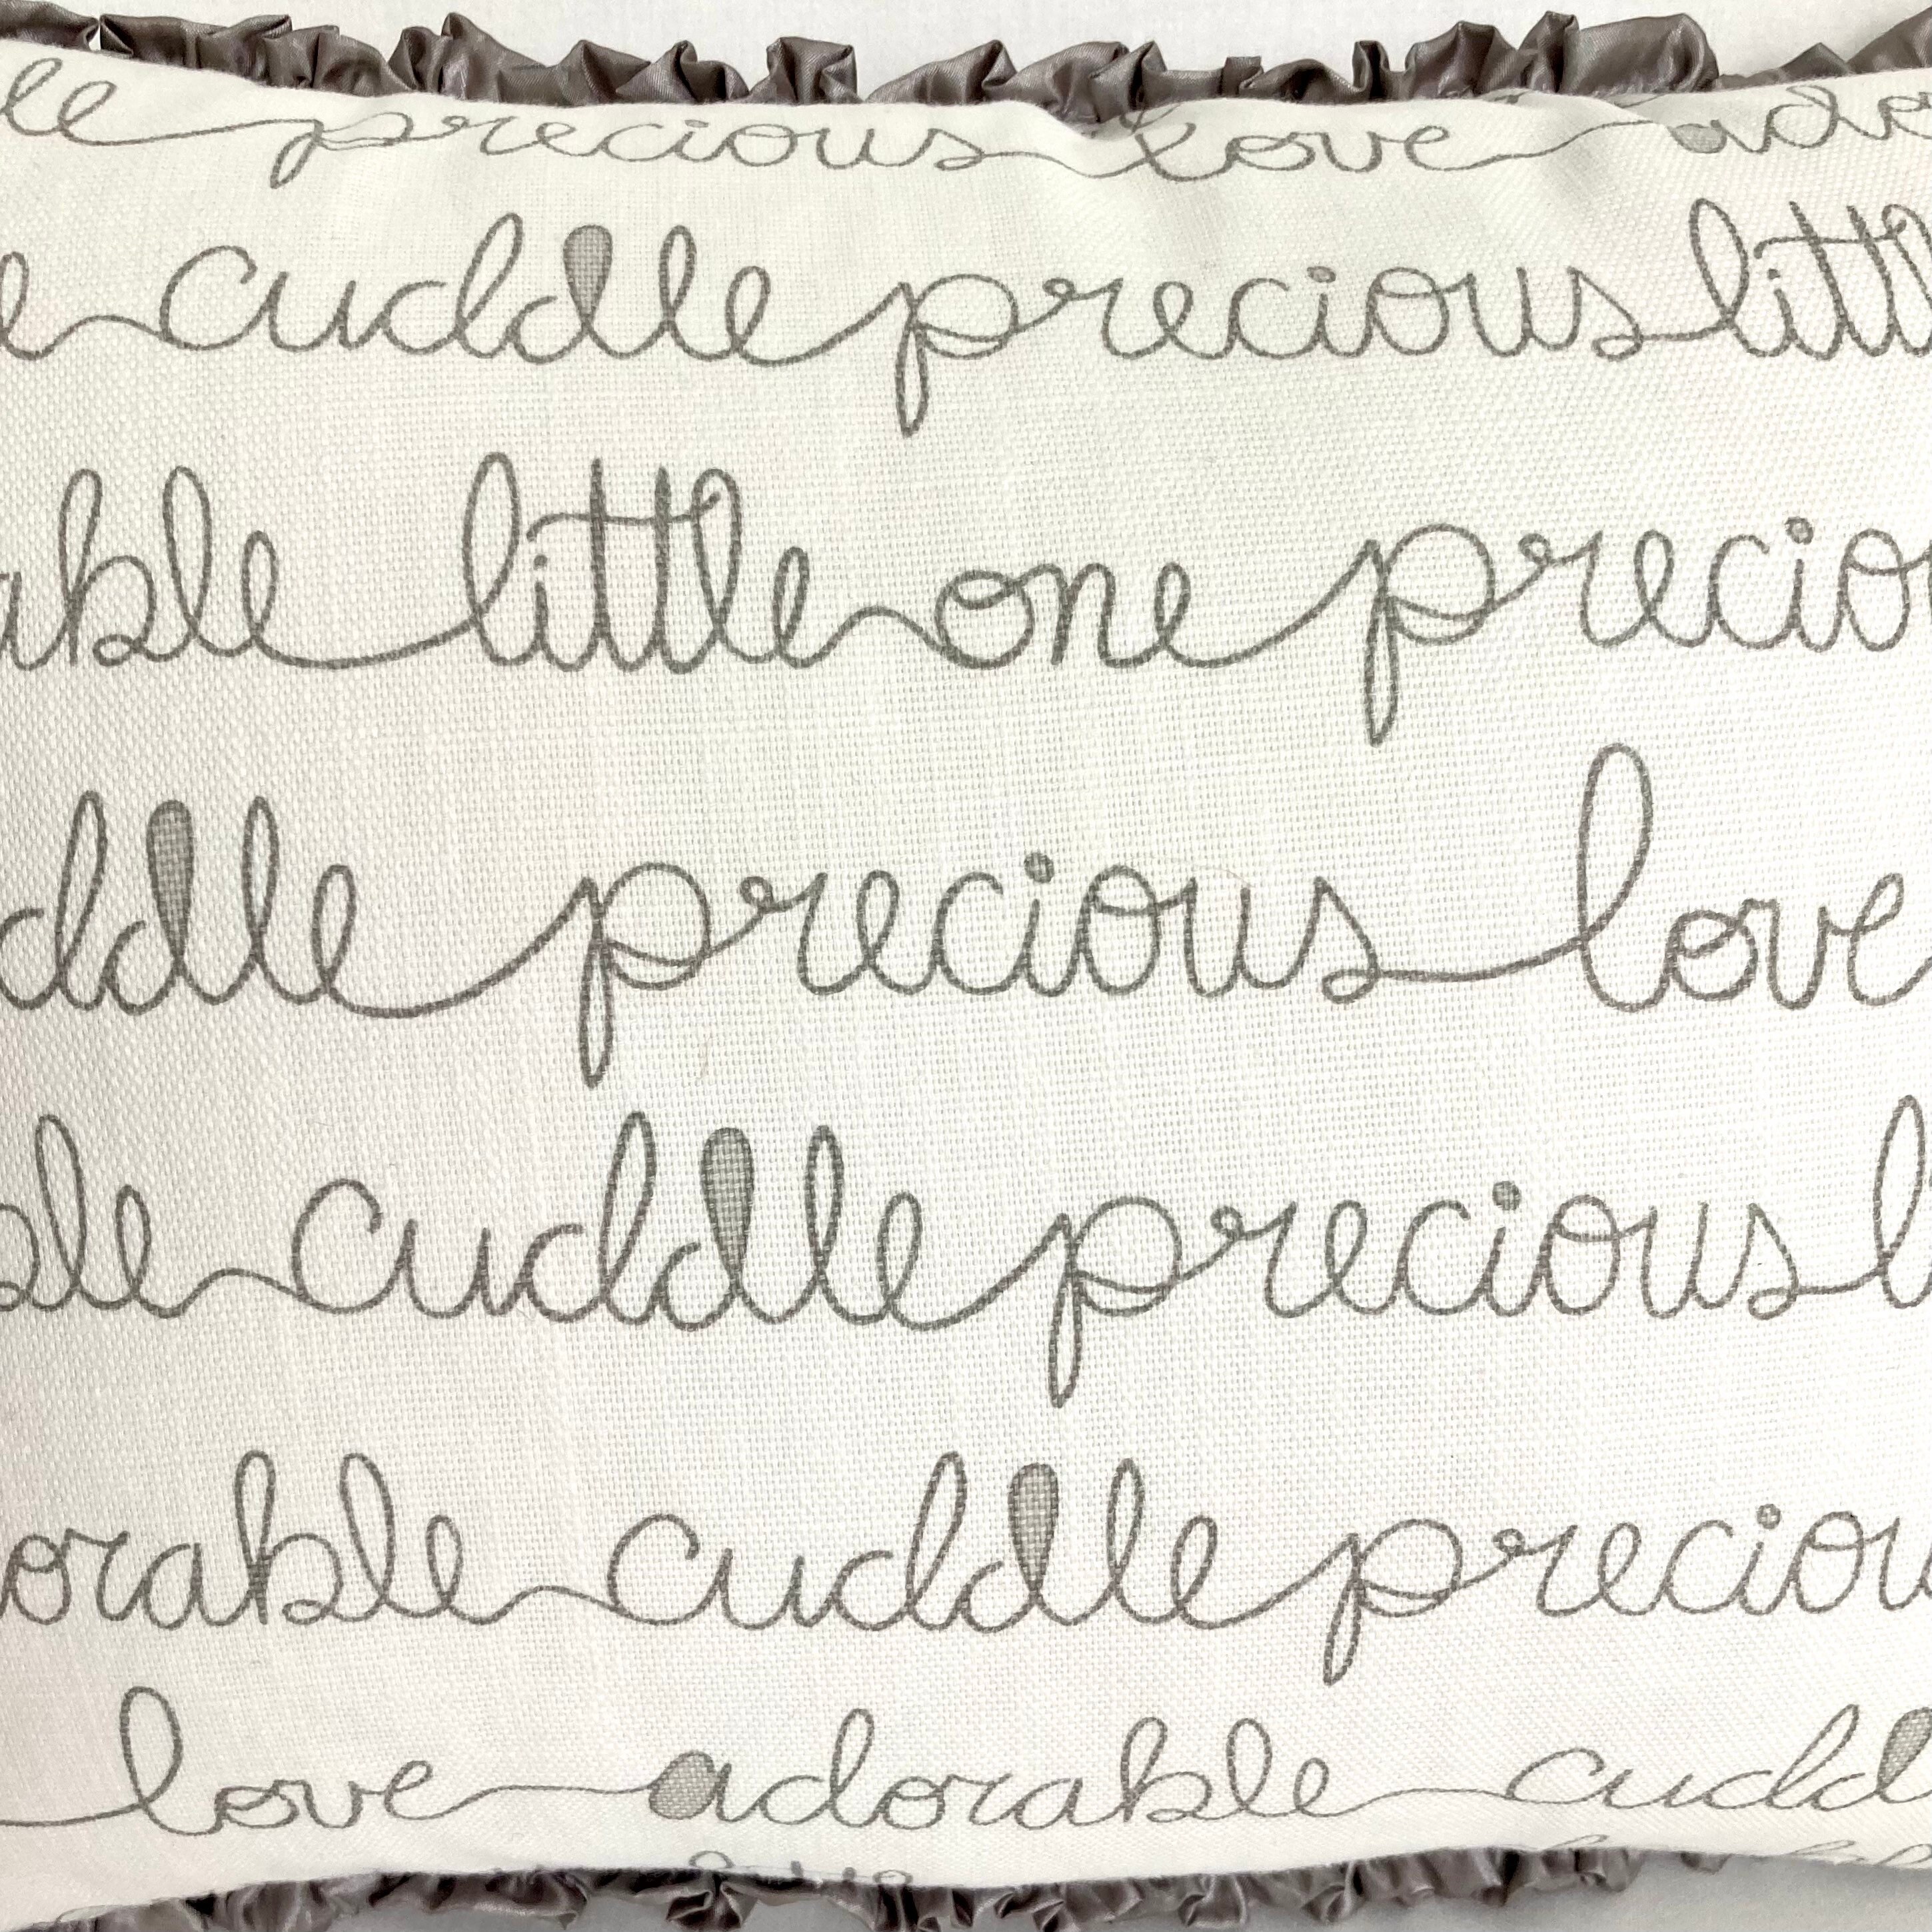 le precious love ado
e cuddle precious littl
able little one preciou
ddle precious love
ble cuddle precious l
orable cuddle preciou
love adorable cuddl